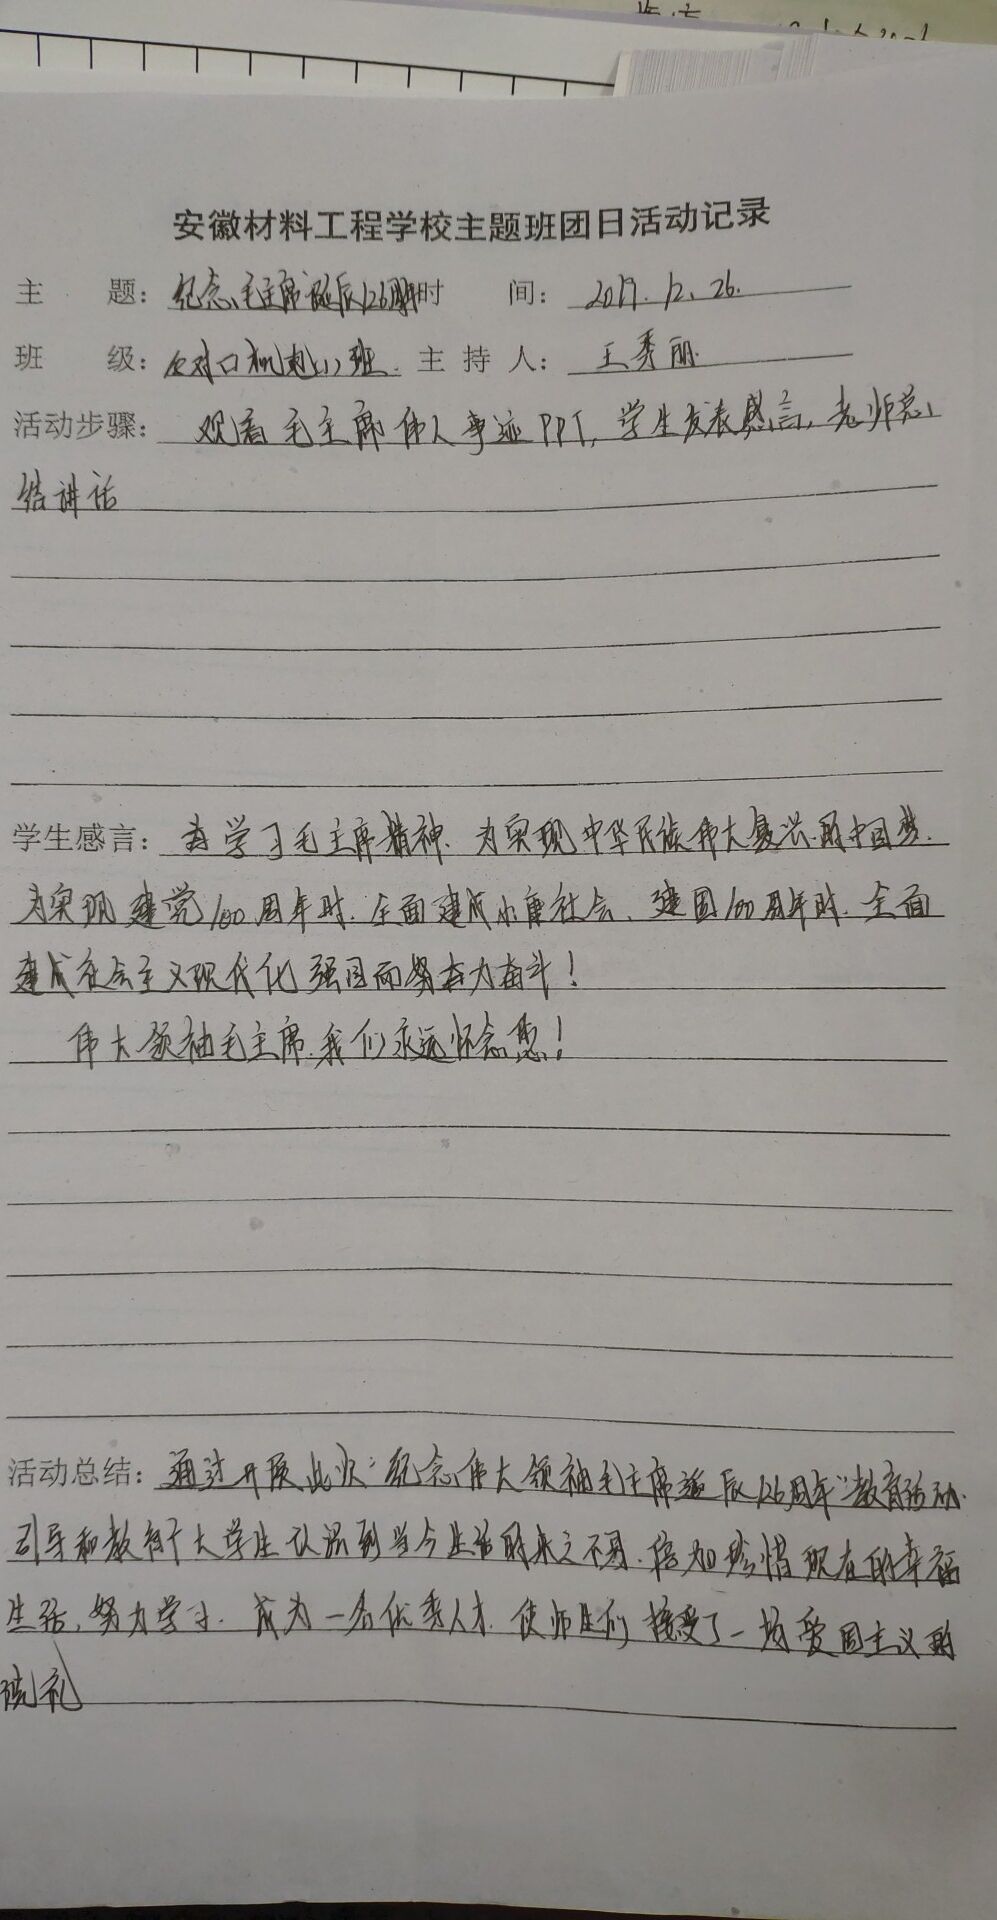 安徽材料工程学校主题班团日活动记录
主 题: 纪念毛主席诞辰126周年 时 间: 2019.12.26.
班 级: 对口机电(1)班. 主 持 人: 王秀丽.
活动步骤: 观看毛主席伟人事迹PPT, 学生发表感言, 老师总
结讲话
学生感言: 去学习毛主席精神. 为实现中华民族伟大复兴的中国梦.
为实现建党100周年时. 全面建成小康社会、建国100周年时. 全面
建成社会主义现代化强国而努力奋斗!
伟大领袖毛主席. 我们永远怀念您!
活动总结: 通过开展此次“纪念伟大领袖毛主席诞辰126周年”教育活动.
引导和教育广大学生认识到当今生活的来之不易. 倍加珍惜现在的幸福
生活, 努力学习. 成为一名优秀人才. 使师生们接受了一场爱国主义的
洗礼